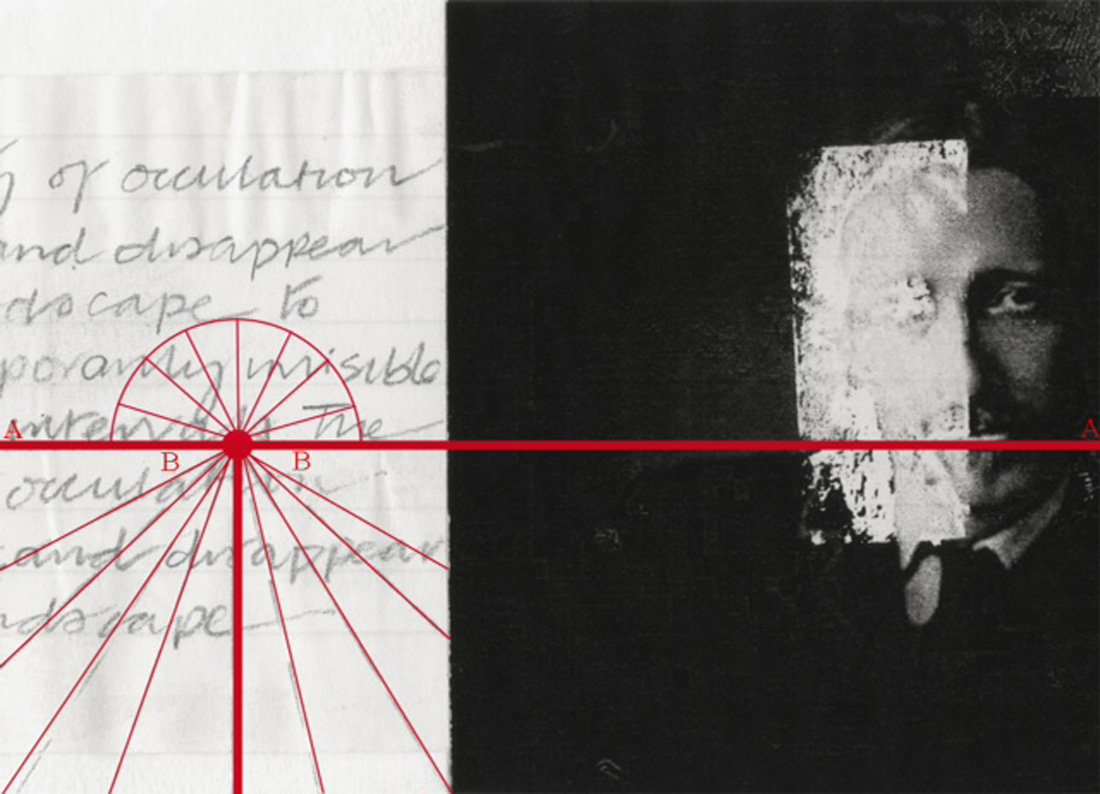 of occulation
and disappear
dscape to
porarily invisible
A intervals The A
B B
occulation
and disappear
ndscape